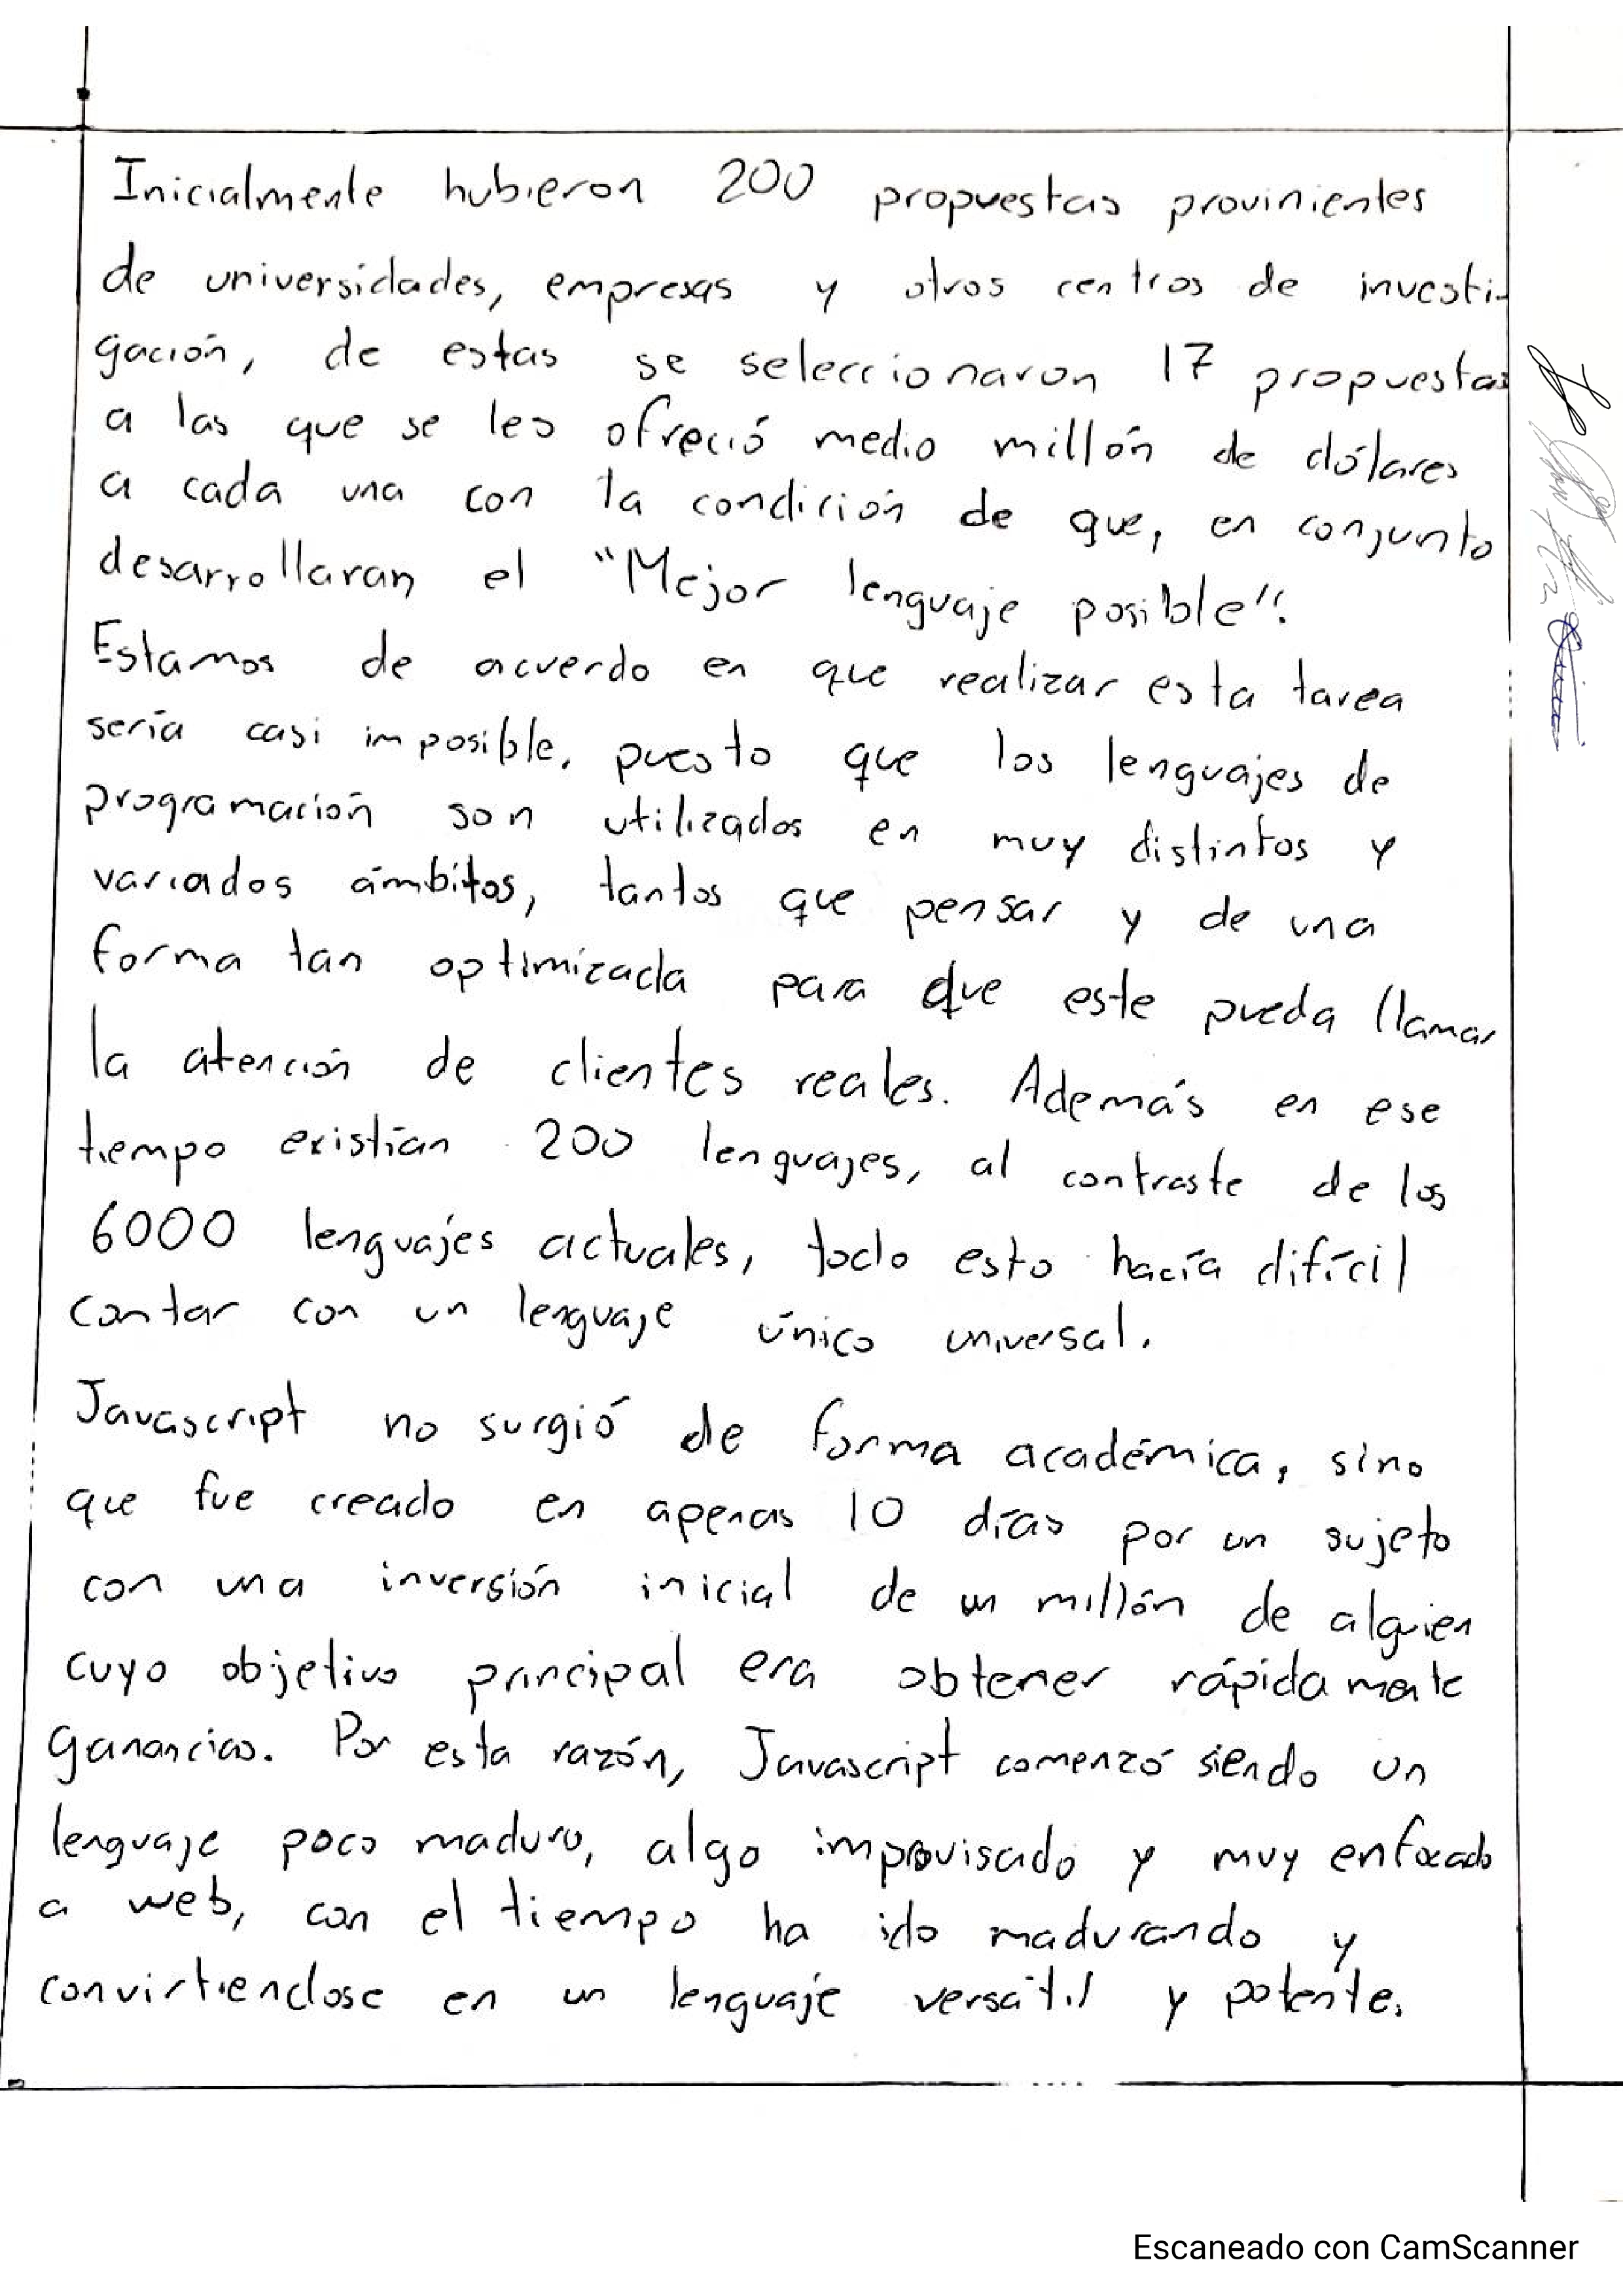 Inicialmente hubieron 200 propuestas provinientes
de universidades, empresas y otros centros de investi-
gación, de estas se seleccionaron 17 propuestas
a las que se les ofreció medio millón de dólares
a cada una con la condición de que, en conjunto
desarrollaran el "Mejor lenguaje posible".
Estamos de acuerdo en que realizar esta tarea
sería casi imposible, puesto que los lenguajes de
programación son utilizados en muy distintos y
variados ámbitos, tantos que pensar y de una
forma tan optimizada para que este pueda llamar
la atención de clientes reales. Además en ese
tiempo existían 200 lenguajes, al contraste de los
6000 lenguajes actuales, todo esto hacía difícil
contar con un lenguaje único universal.
Javascript no surgió de forma académica, sino
que fue creado en apenas 10 días por un sujeto
con una inversión inicial de un millón de alguien
cuyo objetivo principal era obtener rápidamente
ganancias. Por esta razón, Javascript comenzó siendo un
lenguaje poco maduro, algo improvisado y muy enfocado
a web, con el tiempo ha ido madurando y
convirtiendose en un lenguaje versátil y potente.
Escaneado con CamScanner